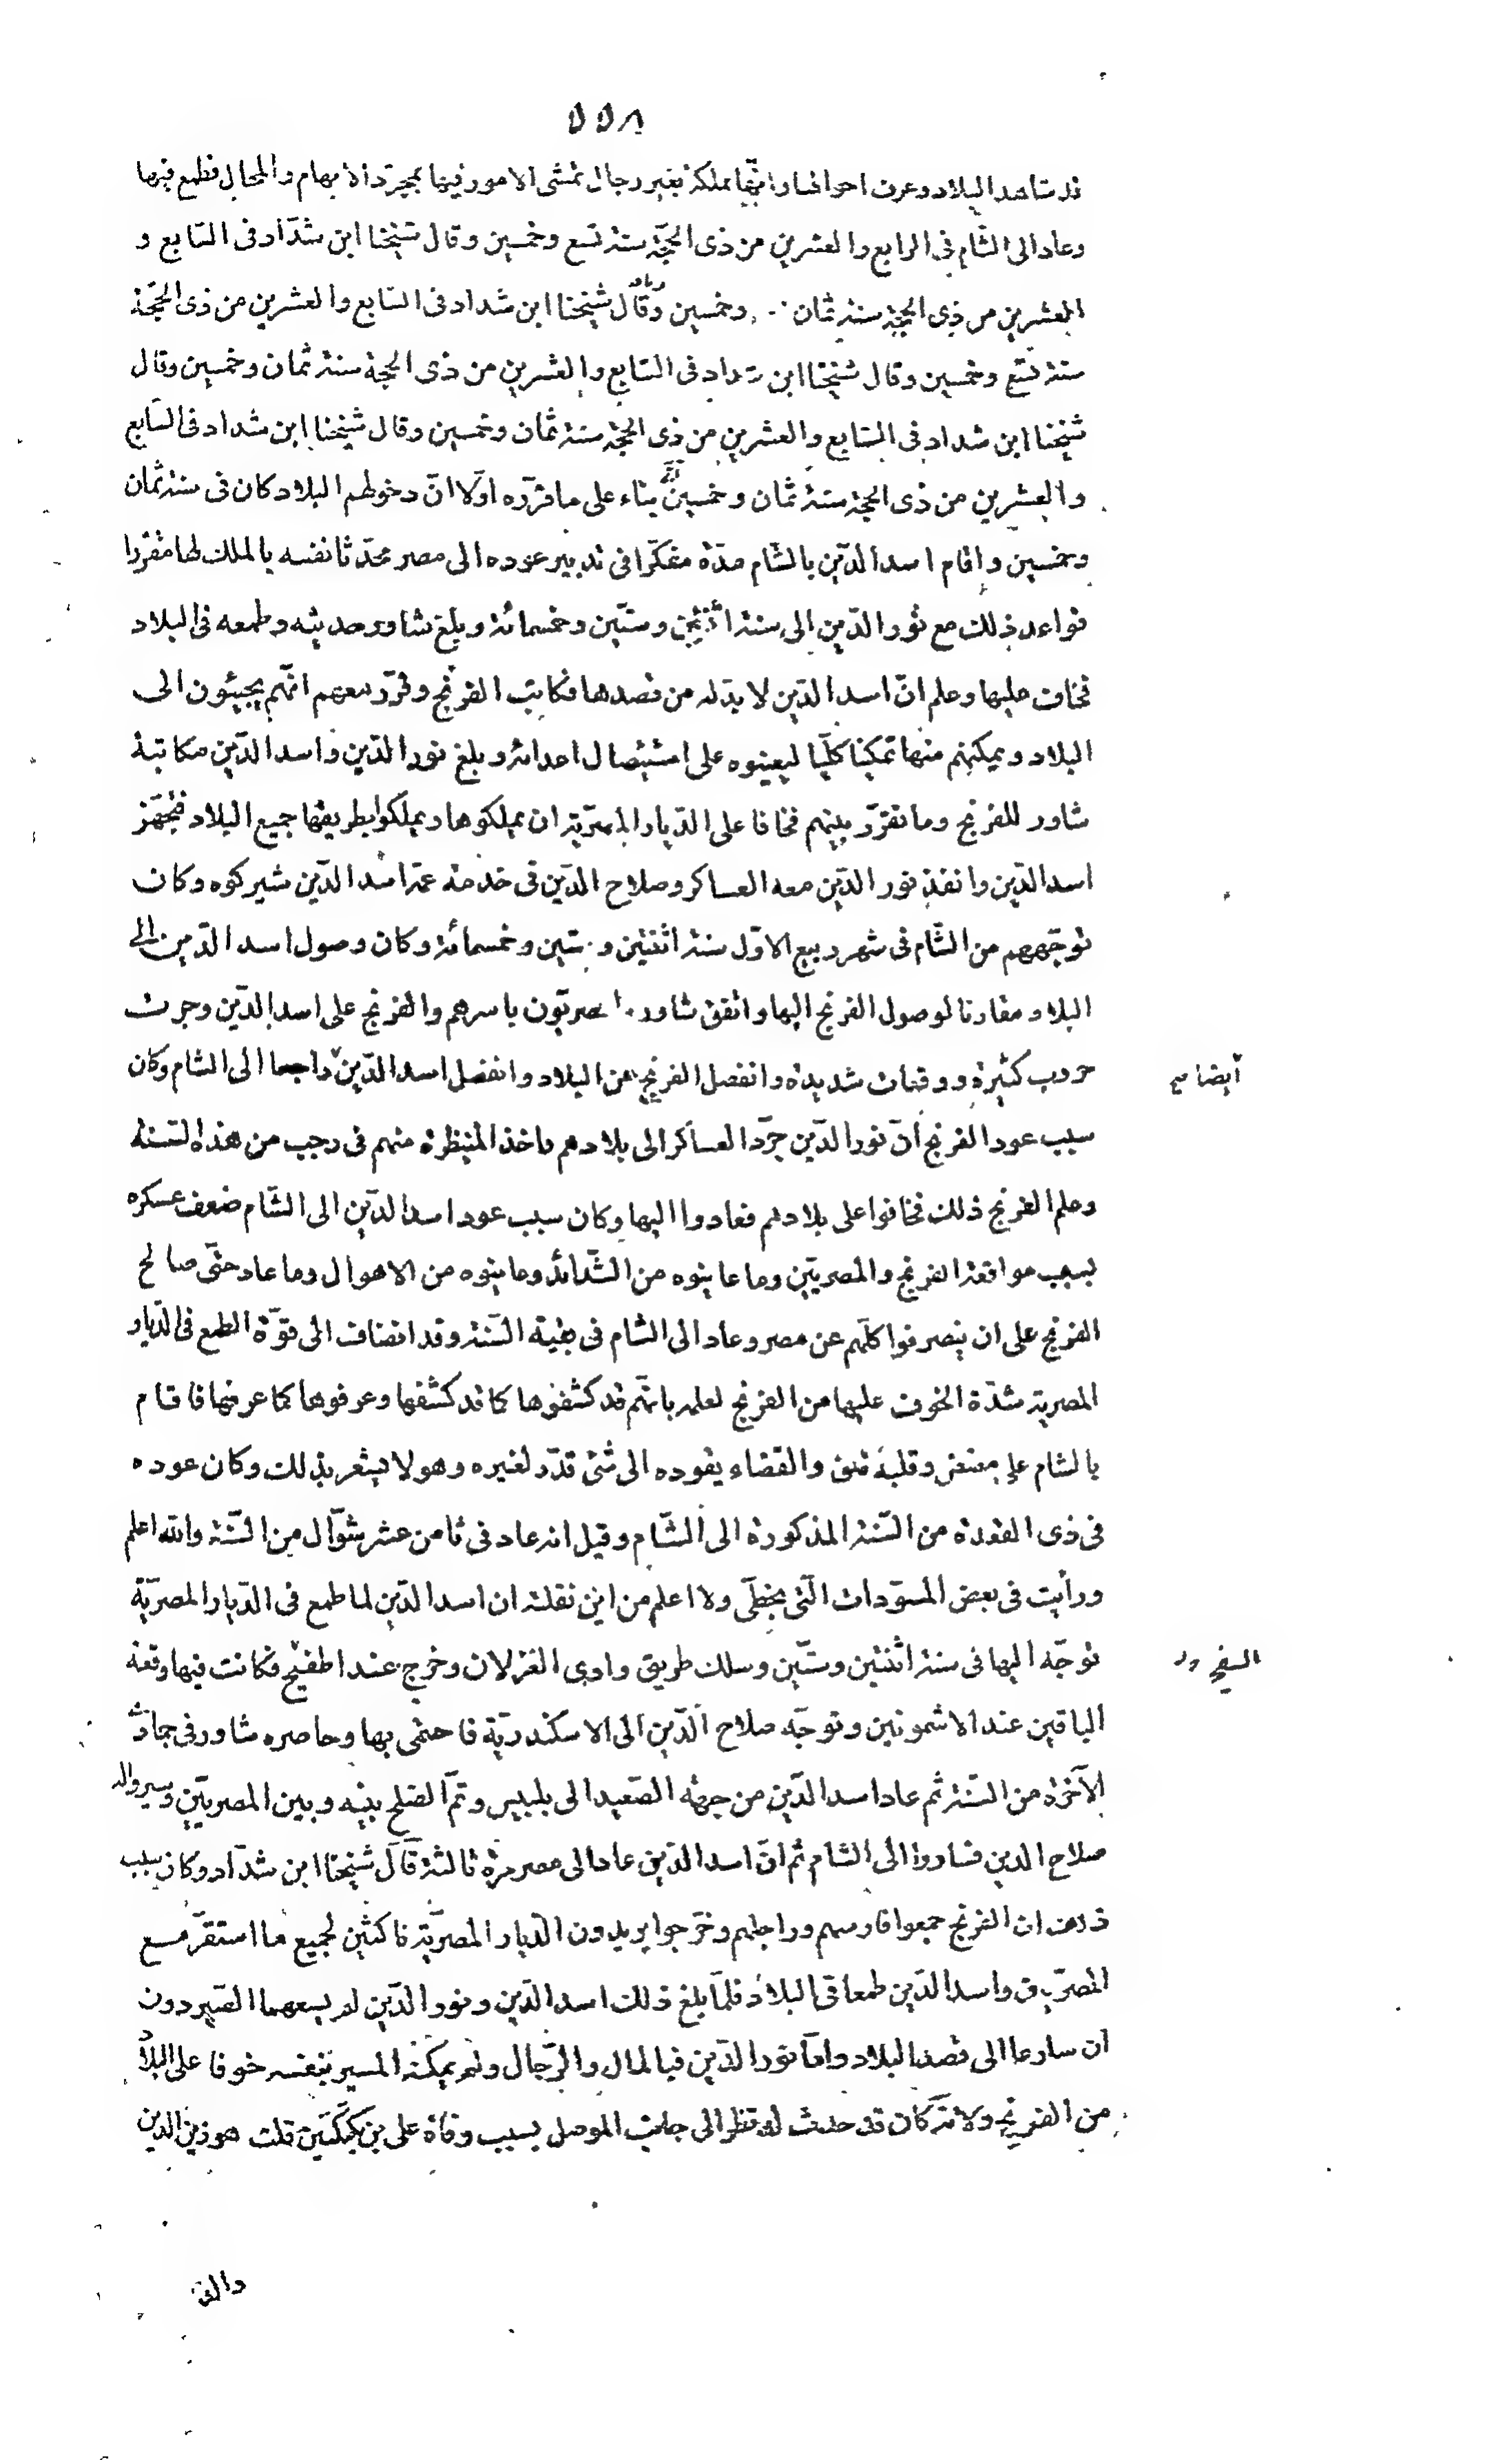 ٥٥٨
قد شاهد البلاد وعرف احوالها وانّها مملكة بغير رجال تمشى الامور فيها بمجرّد الايهام والمحال فطمع فيها
وعاد الى الشّام فى الرابع والعشرين من ذى الحجّة سنة تسع وخمسين وقال شيخنا ابن شدّاد فى السّابع و
العشرين من ذى الحجّة سنة ثمان وخمسين وقال شيخنا ابن شداد فى السّابع والعشرين من ذى الحجّة
سنة تسع وخمسين وقال شيخنا ابن شداد فى السّابع والعشرين من ذى الحجة سنة ثمان وخمسين وقال
شيخنا ابن شداد فى السّابع والعشرين من ذى الحجّة سنة ثمان وخمسين وقال شيخنا ابن شداد فى السّابع
والعشرين من ذى الحجة سنة ثمان وخمسين بناء على ما قرّره اوّلا انّ دخولهم البلاد كان فى سنة ثمان
وخمسين واقام اسد الدّين بالشّام مدّة مفكّرا فى تدبير عوده الى مصر محدّثا نفسه بالملك لها مقرّرا
قواعد ذلك مع نور الدّين الى سنة اثنين وستّين وخمسمائة وبلغ شاور حديثه وطمعه فى البلاد
فخاف عليها وعلم انّ اسد الدّين لا بدّ له من قصدها فكاتب الفرنج وقرّر معهم انّهم يجيئون الى
البلاد ويمكنهم منها تمكينا كلّيا ليعينوه على استيصال اعدائه وبلغ نور الدّين واسد الدّين مكاتبة
شاور للفرنج وما تقرّر بينهم فخافا على الدّيار المصريّة ان يملكوها ويملكوا بطريقها جميع البلاد فتجهّز
اسد الدّين وانفذ نور الدّين معه العساكر وصلاح الدّين فى خدمة عمّه اسد الدّين شيركوه وكان
توجّههم من الشّام فى شهر ربيع الاوّل سنة اثنتين وستّين وخمسمائة وكان وصول اسد الدّين الى
البلاد مقارنا لوصول الفرنج اليها واتفق شاور المصريّون باسرهم والفرنج على اسد الدّين وجرت
حروب كثيرة ووقعات شديدة وانفصل الفرنج عن البلاد وانفصل اسد الدّين راجعا الى الشام وكان
ايضا صح
سبب عود الفرنج انّ نور الدّين جرّد العساكر الى بلادهم واخذ المنيظرة منهم فى رجب من هذه السّنة
وعلم الفرنج ذلك فخافوا على بلادهم فعادوا اليها وكان سبب عود اسد الدّين الى الشّام ضعف عسكره
بسبب مواقعة الفرنج والمصريّين وما عاينوه من الشّدائد وعاينوه من الاهوال وما عاد حتّى صالح
الفرنج على ان ينصرفوا كلّهم عن مصر وعاد الى الشام فى بقية السّنة وقد انضاف الى قوّة الطمع فى الدّيار
المصرية شدّة الخوف عليها من الفرنج لعلمه بانّهم قد كشفوها كما قد كشفها وعرفوها كما عرفها فاقام
بالشام على مضض وقلبه قلق والقضاء يقوده الى شئ قدّر لغيره وهو لا يشعر بذلك وكان عوده
فى ذى القعدة من السّنة المذكورة الى الشّام وقيل انه عاد فى ثامن عشر شوّال من السّنة والله اعلم
ورأيت فى بعض المسوّدات الّتى بخطّى ولا اعلم من اين نقلته ان اسد الدّين لما طمع فى الدّيار المصريّة
توجّه اليها فى سنة اثنتين وستّين وسلك طريق وادى الغزلان وخرج عند اطفيح فكانت فيها وقعة
الباقين عند الاشمونين وتوجّه صلاح الدّين الى الاسكندريّة فاحتمى بها وحاصره شاور فى جمادى
الآخرة من السّنة ثم عاد اسد الدّين من جهة الصّعيد الى بلبيس وتمّ الصّلح بينه وبين المصريّين وسيروا له
صلاح الدين فساروا الى الشام ثم انّ اسد الدّين عاد الى مصر مرّة ثالثة قال شيخنا ابن شدّاد وكان سبب
ذلك ان الفرنج جمعوا فارسهم وراجلهم وخرجوا يريدون الدّيار المصريّة ناكثين لجميع ما استقرّ مع
المصريّين واسد الدّين طمعا فى البلاد فلمّا بلغ ذلك اسد الدّين ونور الدّين لم يسعهما الصّبر دون
ان سارعا الى قصد البلاد وامّا نور الدّين فبالمال والرّجال ولم يمكنه المسير بنفسه خوفا على البلاد
من الفرنج ولانّه كان قد حدث له نظر الى جانب الموصل بسبب وفاة على بن بكتكين قلت هو زين الدين